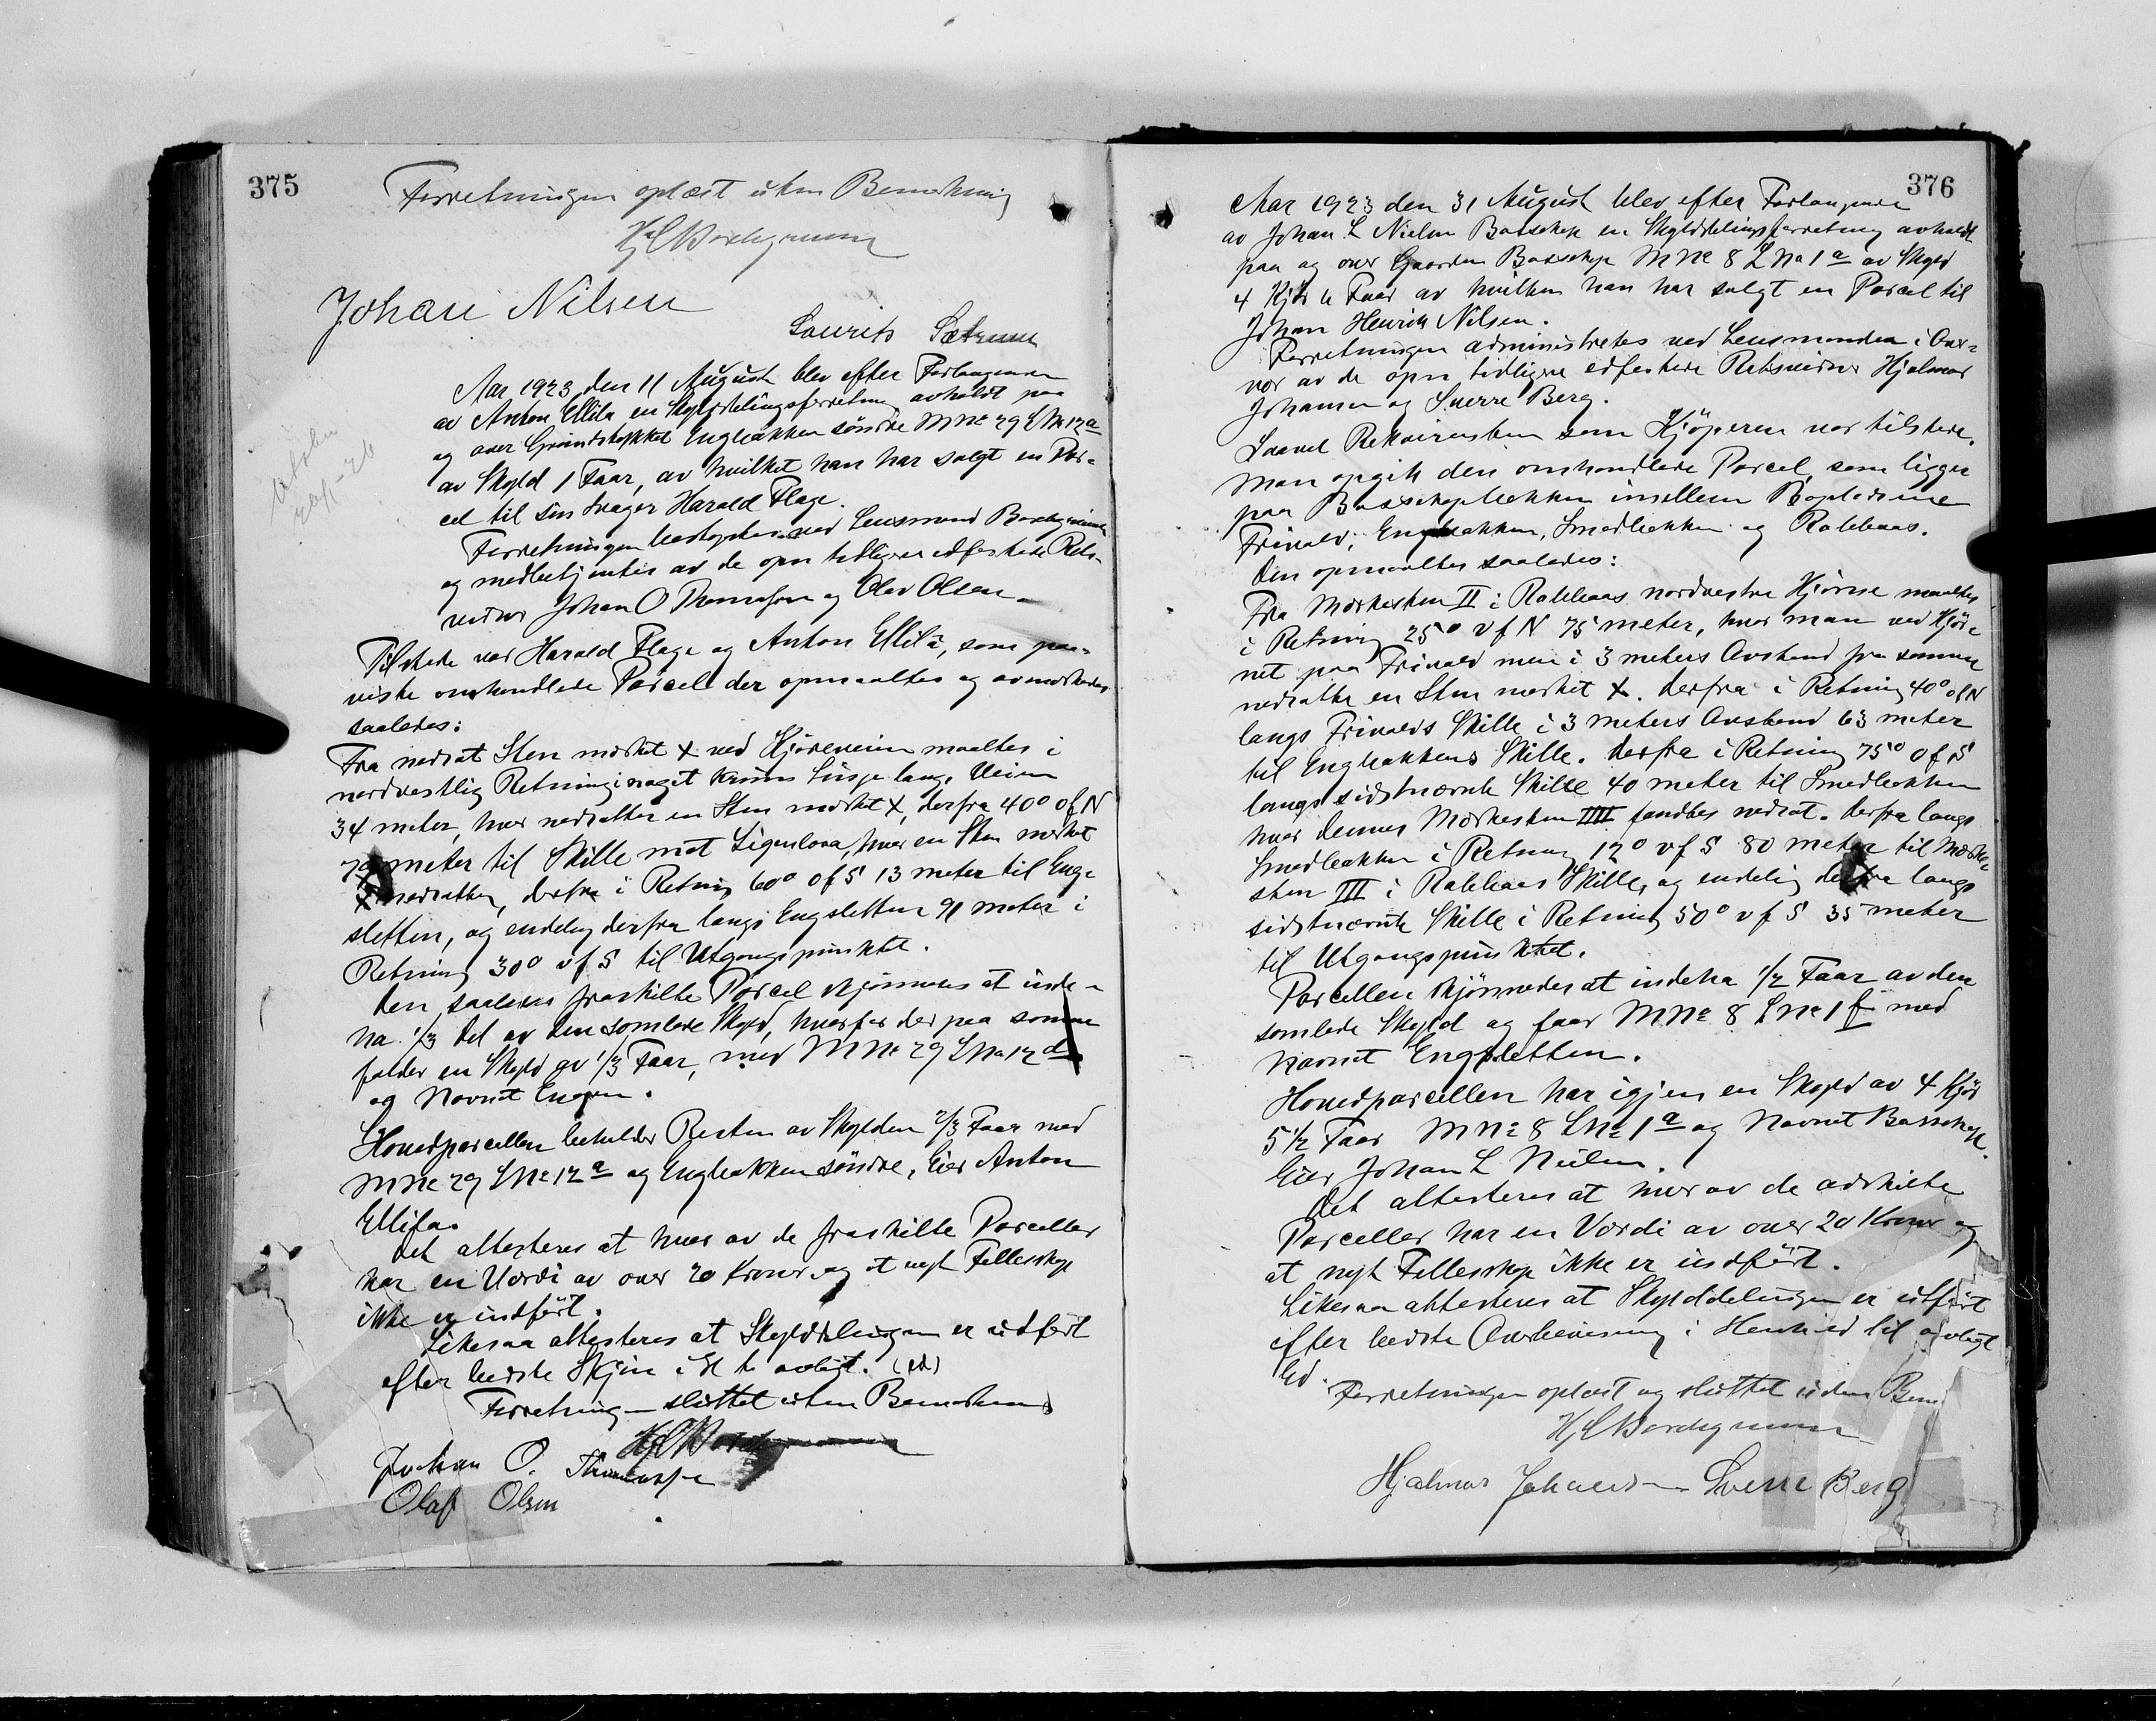 375
Forretningen oplæst uten Bemerkning
Johan Nilsen
Laurits
Aar 1923 den 11 August blev efter Forlangende
av Anton Ellila en Skylddelingsforretning avholdt paa
og over Grundstykket Engbakken söndre MNo 29 LNo 12a
av Skyld 1 Faar, av hvilket han har solgt en Par-
cel til sin Svager Harald Flage.
Forretningen ved Lensmand
og medbetjentes av de opn tidligere edfestede Rets-
vidner Johan O Thomassen og Olav Olsen
Tilstede var Harald Flage og Anton Ellilä, som paa-
viste omhandlede Parcel der opmaaltes og avmerkedes
saaledes:
Fra nedsat Sten merket X ved Kjöreveien maaltes i
nordvestlig Retning i noget krum Linje langs Veien
34 meter, hvor nedsattes en Sten merket X, derfra 40° ofN
meter til Skille mot hvor en Sten merket
X nedsattes, derfra i Retning 60° ofS 13 meter til Eng-
sletten, og endelig derfra langs Engsletten 91 meter i
Retning 30° vfS til Utgangspunktet.
Den saaledes fraskilte Parcel skjönnedes at inde-
ha 1/3 Del av den samlede Skyld, hvorfor der paa samme
falder en Skyld av 1/3 Faar, med MNo 29 LNo 12d
og Navnet Engen.
Hovedparcellen beholder Resten av Skylden 2/3 Faar med
MNo 29 LNo 12a og Engbakken söndre, Eier Anton
Ellila.
Det attesteres at hver av de fraskilte Parceller
har en Værdi av over 20 Kroner og at nyt Fellesskap
ikke er indfört.
Likesaa attesteres at Skylddelingen er utfört
efter bedste Skjön i H t avlagt. (ed)
Forretning sluttet uten Bemerkning
Johan O. Thomassen
Olaf Olsen
376
Aar 1923 den 31 August blev efter Forlangende
av Johan L Nielsen Bossekop en Skylddelingsforretning avholdt
paa og over Gaarden Bossekop MNo 8 LNo 1a av Skyld
4 Kjör 6 Faar av hvilken han har solgt en Parcel til
Johan Henrik Nilsen.
Forretningen administretes ved Lensmanden i Over-
vær av de opn tidligere edfestede Retsvidner Hjalmar
Johansen og Sverre Berg.
Saavel Rekvirenten som Kjöperen var tilstede.
Man opgik den omhandlede Parcel, som ligger
paa Bossekopbakken imellem Bopladsene
Frivold, Engbakken, Smedbakken og Rabbaas.
Den opmaaltes saaledes:
Fra Merkesten II i Rabbaas nordvestre Hjörne maaltes
i Retning 25° vfN 75 meter, hvor man ved Hjör-
net paa Frivold men i 3 meters Avstand fra samme
nedsatte en Sten merket X. Derfra i Retning 40° ofN
langs Frivolds Skille i 3 meters Avstand 63 meter
til Engbakkens Skille. Derfra i Retning 75° ofS
langs sidstnævnte Skille 40 meter til Smedbakken
hvor dennes Merkesten IIII fandtes nedsat. Derfra langs
Smedbakken i Retning 12° vfS 80 meter til Merke-
sten III i Rabbaas Skille, og endelig derfra langs
sidstnævnte Skille i Retning 50° vfS 35 meter
til Utgangspunktet.
Parcellen skjönnedes at indeha 1/2 Faar av den
samlede Skyld og faar MNo 8 LNo 1f med
Navnet Engsletten.
Hovedparcellen har igjen en Skyld av 4 Kjör
5 1/2 Faar MNo 8 LNo 1a og Navnet Bossekop.
Eier Johan L Nielsen.
Det attesteres at hver av de adskilte
Parceller har en Værdi av over 20 Kroner og
at nyt Fellesskap ikke er indfört.
Likesaa attesteres at Skylddelingen er utfört
efter bedste Overbevisning i Henhold til avlagt
Ed.
Forretningen oplæst og sluttet uden Bem
Hjalmar Johansen Sverre Berg